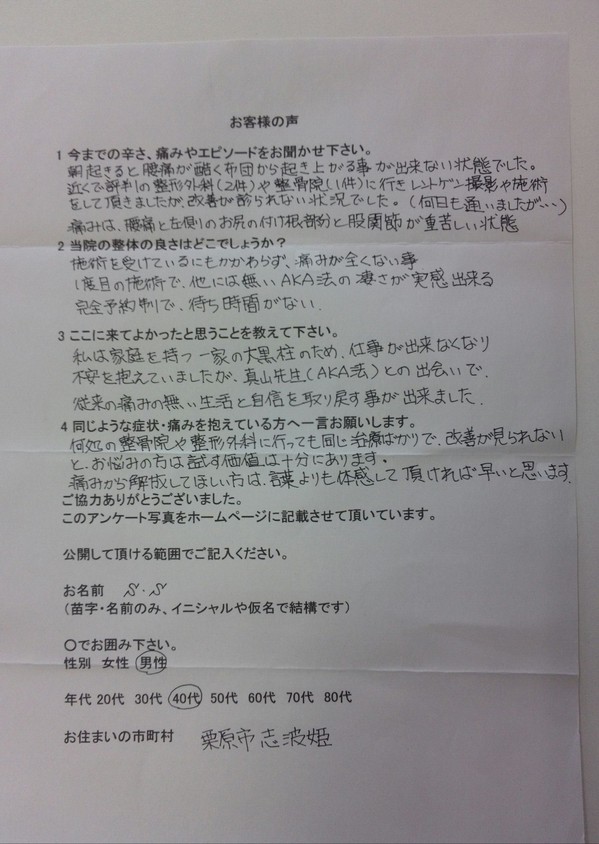 お客様の声
1 今までの辛さ、痛みやエピソードをお聞かせ下さい。
朝起きると腰痛が酷く布団から起き上がる事が出来ない状態でした。
近くで評判の整形外科(2件)や整骨院(1件)に行きレントゲン撮影や施術
をして頂きましたが、改善が診られない状況でした。(何日も通いましたが…)
痛みは、腰痛と左側のお尻の付け根(部分)と股関節が重苦しい状態
2 当院の整体の良さはどこでしょうか?
施術を受けているにもかかわらず、痛みが全くない事
1度目の施術で、他には無いAKA法の凄さが実感出来る
完全予約制で、待ち時間がない.
3 ここに来てよかったと思うことを教えて下さい。
私は家庭を持つ一家の大黒柱のため、仕事が出来なくなり
不安を抱えていましたが、真山先生(AKA法)との出会いで、
従来の痛みの無い生活と自信を取り戻す事が出来ました.
4 同じような症状・痛みを抱えている方へ一言お願いします。
何処の整骨院や整形外科に行っても同じ治療ばかりで、改善が見られない
と、お悩みの方は試す価値は十分にあります.
痛みから解放してほしい方は、言葉よりも体感して頂ければ早いと思います.
ご協力ありがとうございました。
このアンケート写真をホームページに記載させて頂いています。
公開して頂ける範囲でご記入ください。
お名前 S.S
(苗字・名前のみ、イニシャルや仮名で結構です)
〇でお囲み下さい。
性別 女性 男性
年代 20代 30代 40代 50代 60代 70代 80代
お住まいの市町村 栗原市志波姫